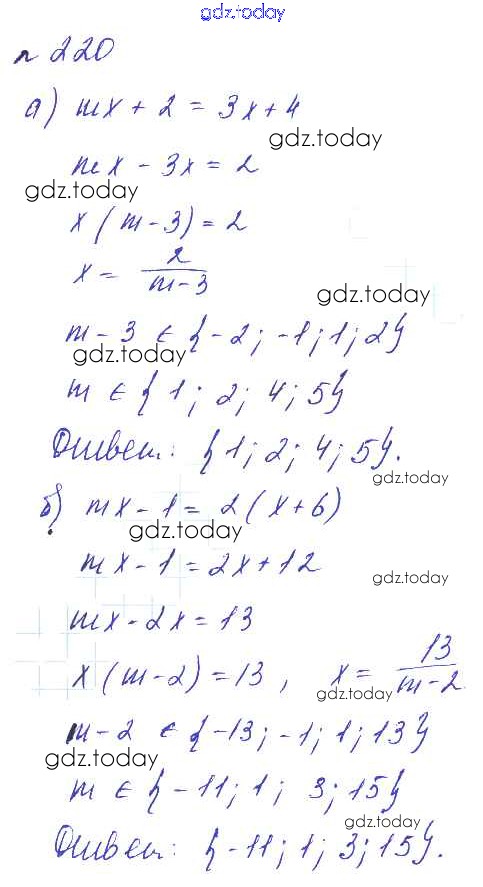 gdz.today
№ 220
а) mx + 2 = 3x + 4
gdz.today
mx - 3x = 2
gdz.today
x (m - 3) = 2
x = 2/(m - 3)
gdz.today
m - 3 ∈ {-2; -1; 1; 2}
gdz.today
m ∈ {1; 2; 4; 5}
Ответ: {1; 2; 4; 5}.
gdz.today
б) mx - 1 = 2(x + 6)
gdz.today
mx - 1 = 2x + 12
gdz.today
mx - 2x = 13
x (m - 2) = 13, x = 13/(m - 2)
gdz.today
m - 2 ∈ {-13; -1; 1; 13}
gdz.today
m ∈ {-11; 1; 3; 15}
gdz.today
Ответ: {-11; 1; 3; 15}.